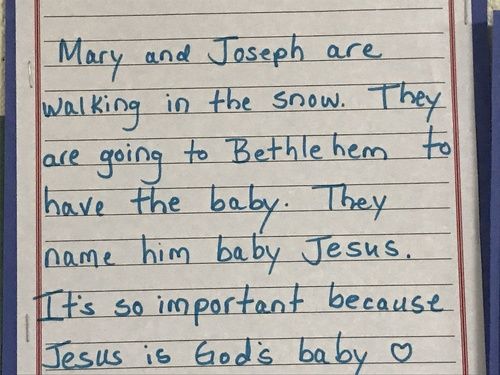 Mary and Joseph are
walking in the snow. They
are going to Bethlehem to
have the baby. They
name him baby Jesus.
It's so important because
Jesus is God's baby ♡